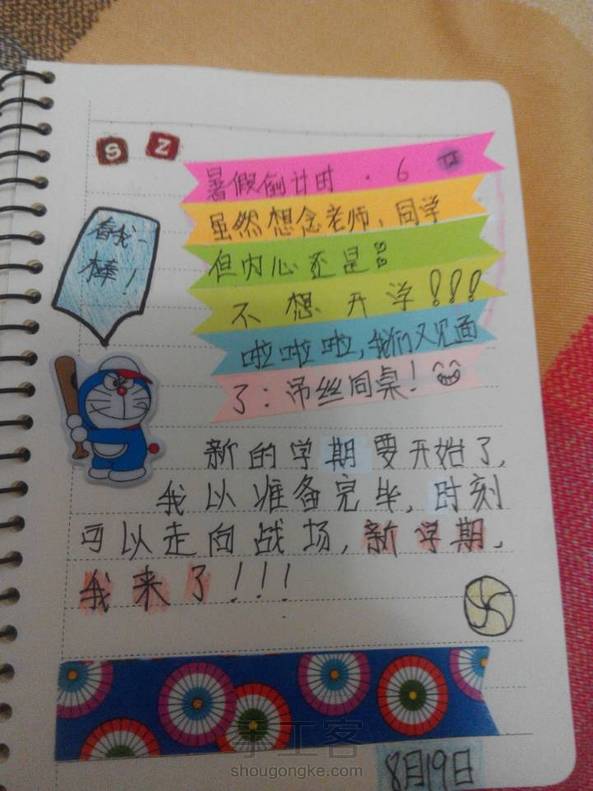 S Z
暑假倒计时 · 6
虽然想念老师、同学
但内心还是
不想开学!!!
啦啦啦,我们又见面
了:吊丝同桌!
看我一
棒!
新的学期要开始了,
我以准备完毕,时刻
可以走向战场,新学期,
我来了!!!
手工客
shougongke.com
8月19日